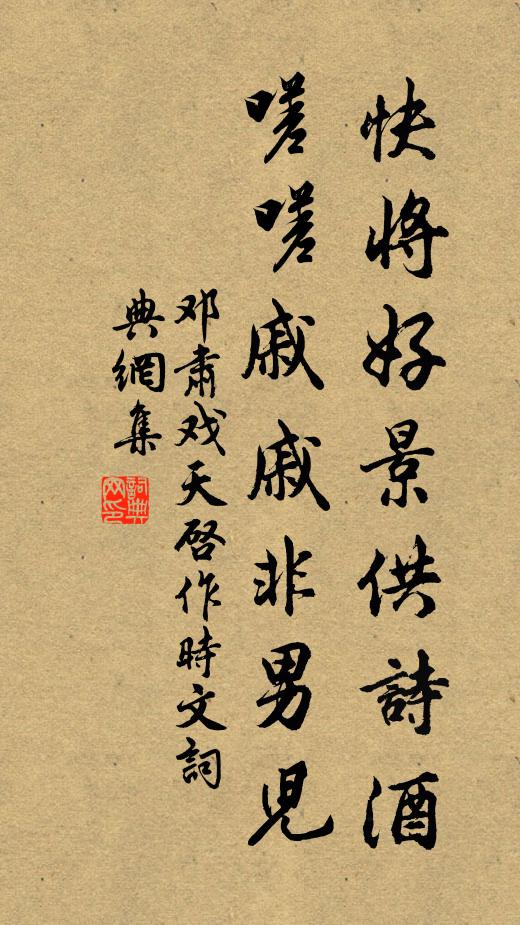 快将好景供詩酒
嗟嗟戚戚非男児
邓肃戏天啓作時文詞
典網集
詞典網印